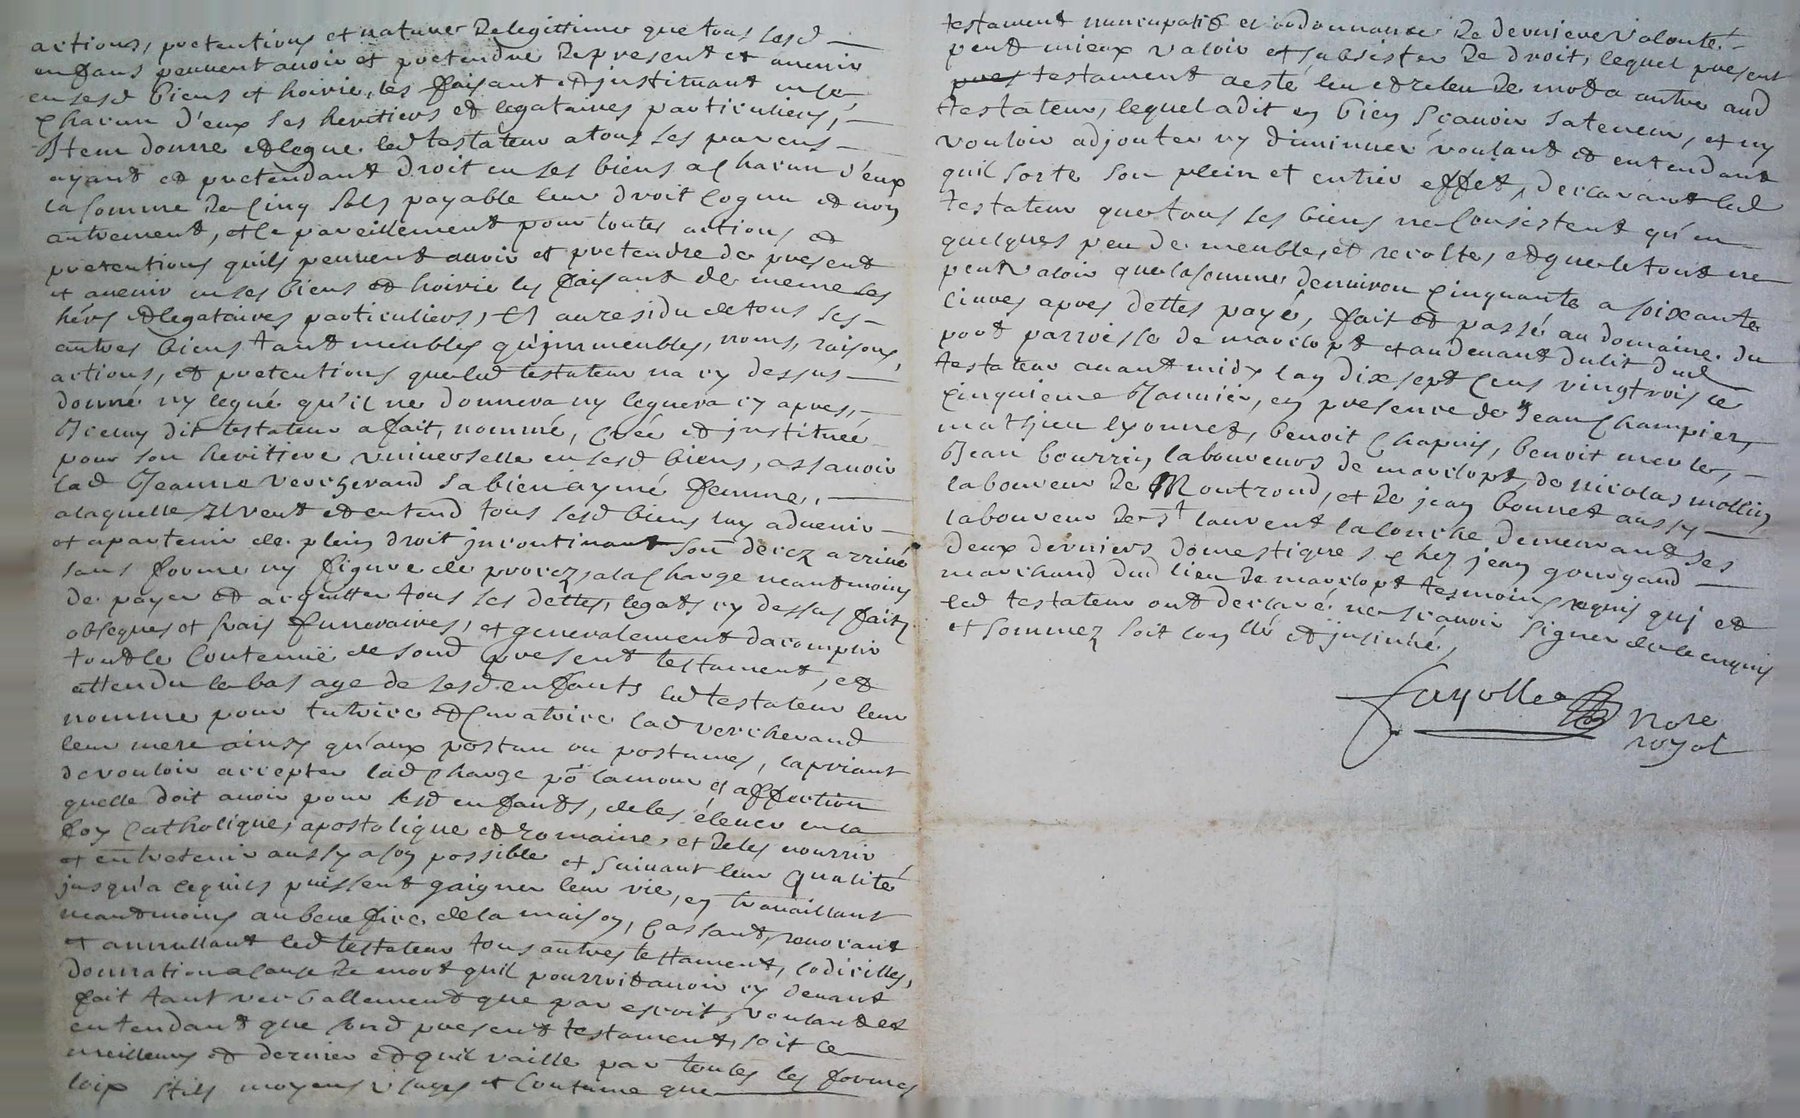 actions, pretentions et nature de legittime que tous lesd
enfans peuvent avoir et pretendre de present et avenir
en sesd biens et hoirie, les faisant et jnstituant en ce
chacun d'eux ses heritiers et legataires particuliers,
Jtem donne et legue led testateur a tous ses parens
ayant et pretendant droit en ses biens a chacun d'eux
la somme de cinq sols payable leur droit cognu et non
autrement, et ce pareillement pour toutes actions et
pretentions quils peuvent avoir et pretendre de present
et avenir en ses biens et hoirie les faisant de meme ses
hérs et legataires particuliers, Et au residu de tous ses
autres biens tant meubles qu'jmmeubles, noms, raisons,
actions, et pretentions que led testateur na cy dessus
donné ny legué qu'il ne donnera ny leguera cy apres,
Jceluy dit testateur a fait, nommé, créé et jnstituée
pour son heritiere vniverselle en sesd biens, assavoir
lad Jeanne vercherand sa bien aymé femme,
a laquelle Il veut et entend tous sesd biens luy advenir
et apartenir de plein droit jncontinant son decez arrivé
sans forme ny figure de procez, a la charge neantmoins
de payer et acquitter tous ses dettes, legats cy dessus faits
obseques et frais funeraires, et generalement dacomplir
tout le contenue de sond present testament, et
attendu le bas age de sesd enfants led testateur leur
nomme pour tutrice et curatrice lad vercherand
leur mere ainsy qu'aux postum ou postumes, la priant
de vouloir accepter lad charge pr lamour et affection
quelle doit avoir pour sesd enfants, de les élever en la
foy Catholique, apostolique et romaine, et de les nourrir
et entretenir aussy a son possible et suivant leur qualité
jusqu'a ce quils puissent gaigner leur vie, en travaillant
neantmoins au benefice de la maison, cassant, revocant
et annullant led testateur tous autres testament, codicilles,
donnation a cause de mort quil pourroit avoir cy devant
fait tant verballement que par escrit, voulant et
entendant que sond present testament, soit le
meilleur et dernier et quil vaille par toutes les formes
loix stils moyens vsages et coutume que
testament nuncupatif et ordonnance de derniere volonté
peut mieux valoir et subsister de droit, lequel present
testament a esté leu et releu de mot a autre aud
testateur, lequel a dit en bien sçavoir sa teneur, et ny
vouloir adjouter ny diminuer voulant et entendant
quil sorte son plein et entier effet, declarant led
testateur que tous ses biens ne consistent qu'en
quelques peu de meubles, et recoltes, et que le tout ne
peut valoir que la somme denviron cinquante a soixante
livres apres dettes payé, fait et passé au domaine du
port parroisse de marclopt et au devant du lit dud
testateur avant midy lan dix sept cens vingt trois ce
cinquieme Janvier, en presence de Jean Champier,
mathieu lyonnet, benoit Chapuis, benoit merle,
Jean bourrin laboureurs de marclopt, de nicolas mollin
laboureur de Montrond, et de jean bonnet aussy
laboureur de st laurent la conche demeurant ses
deux derniers domestiques chez jean gourgaud
marchand dud lieu de marclopt tesmoins requis qui et
led testateur ont declaré ne scavoir signer de ce enquis
et sommez soit conllé et jnsinué,
fayolle Nore
royal